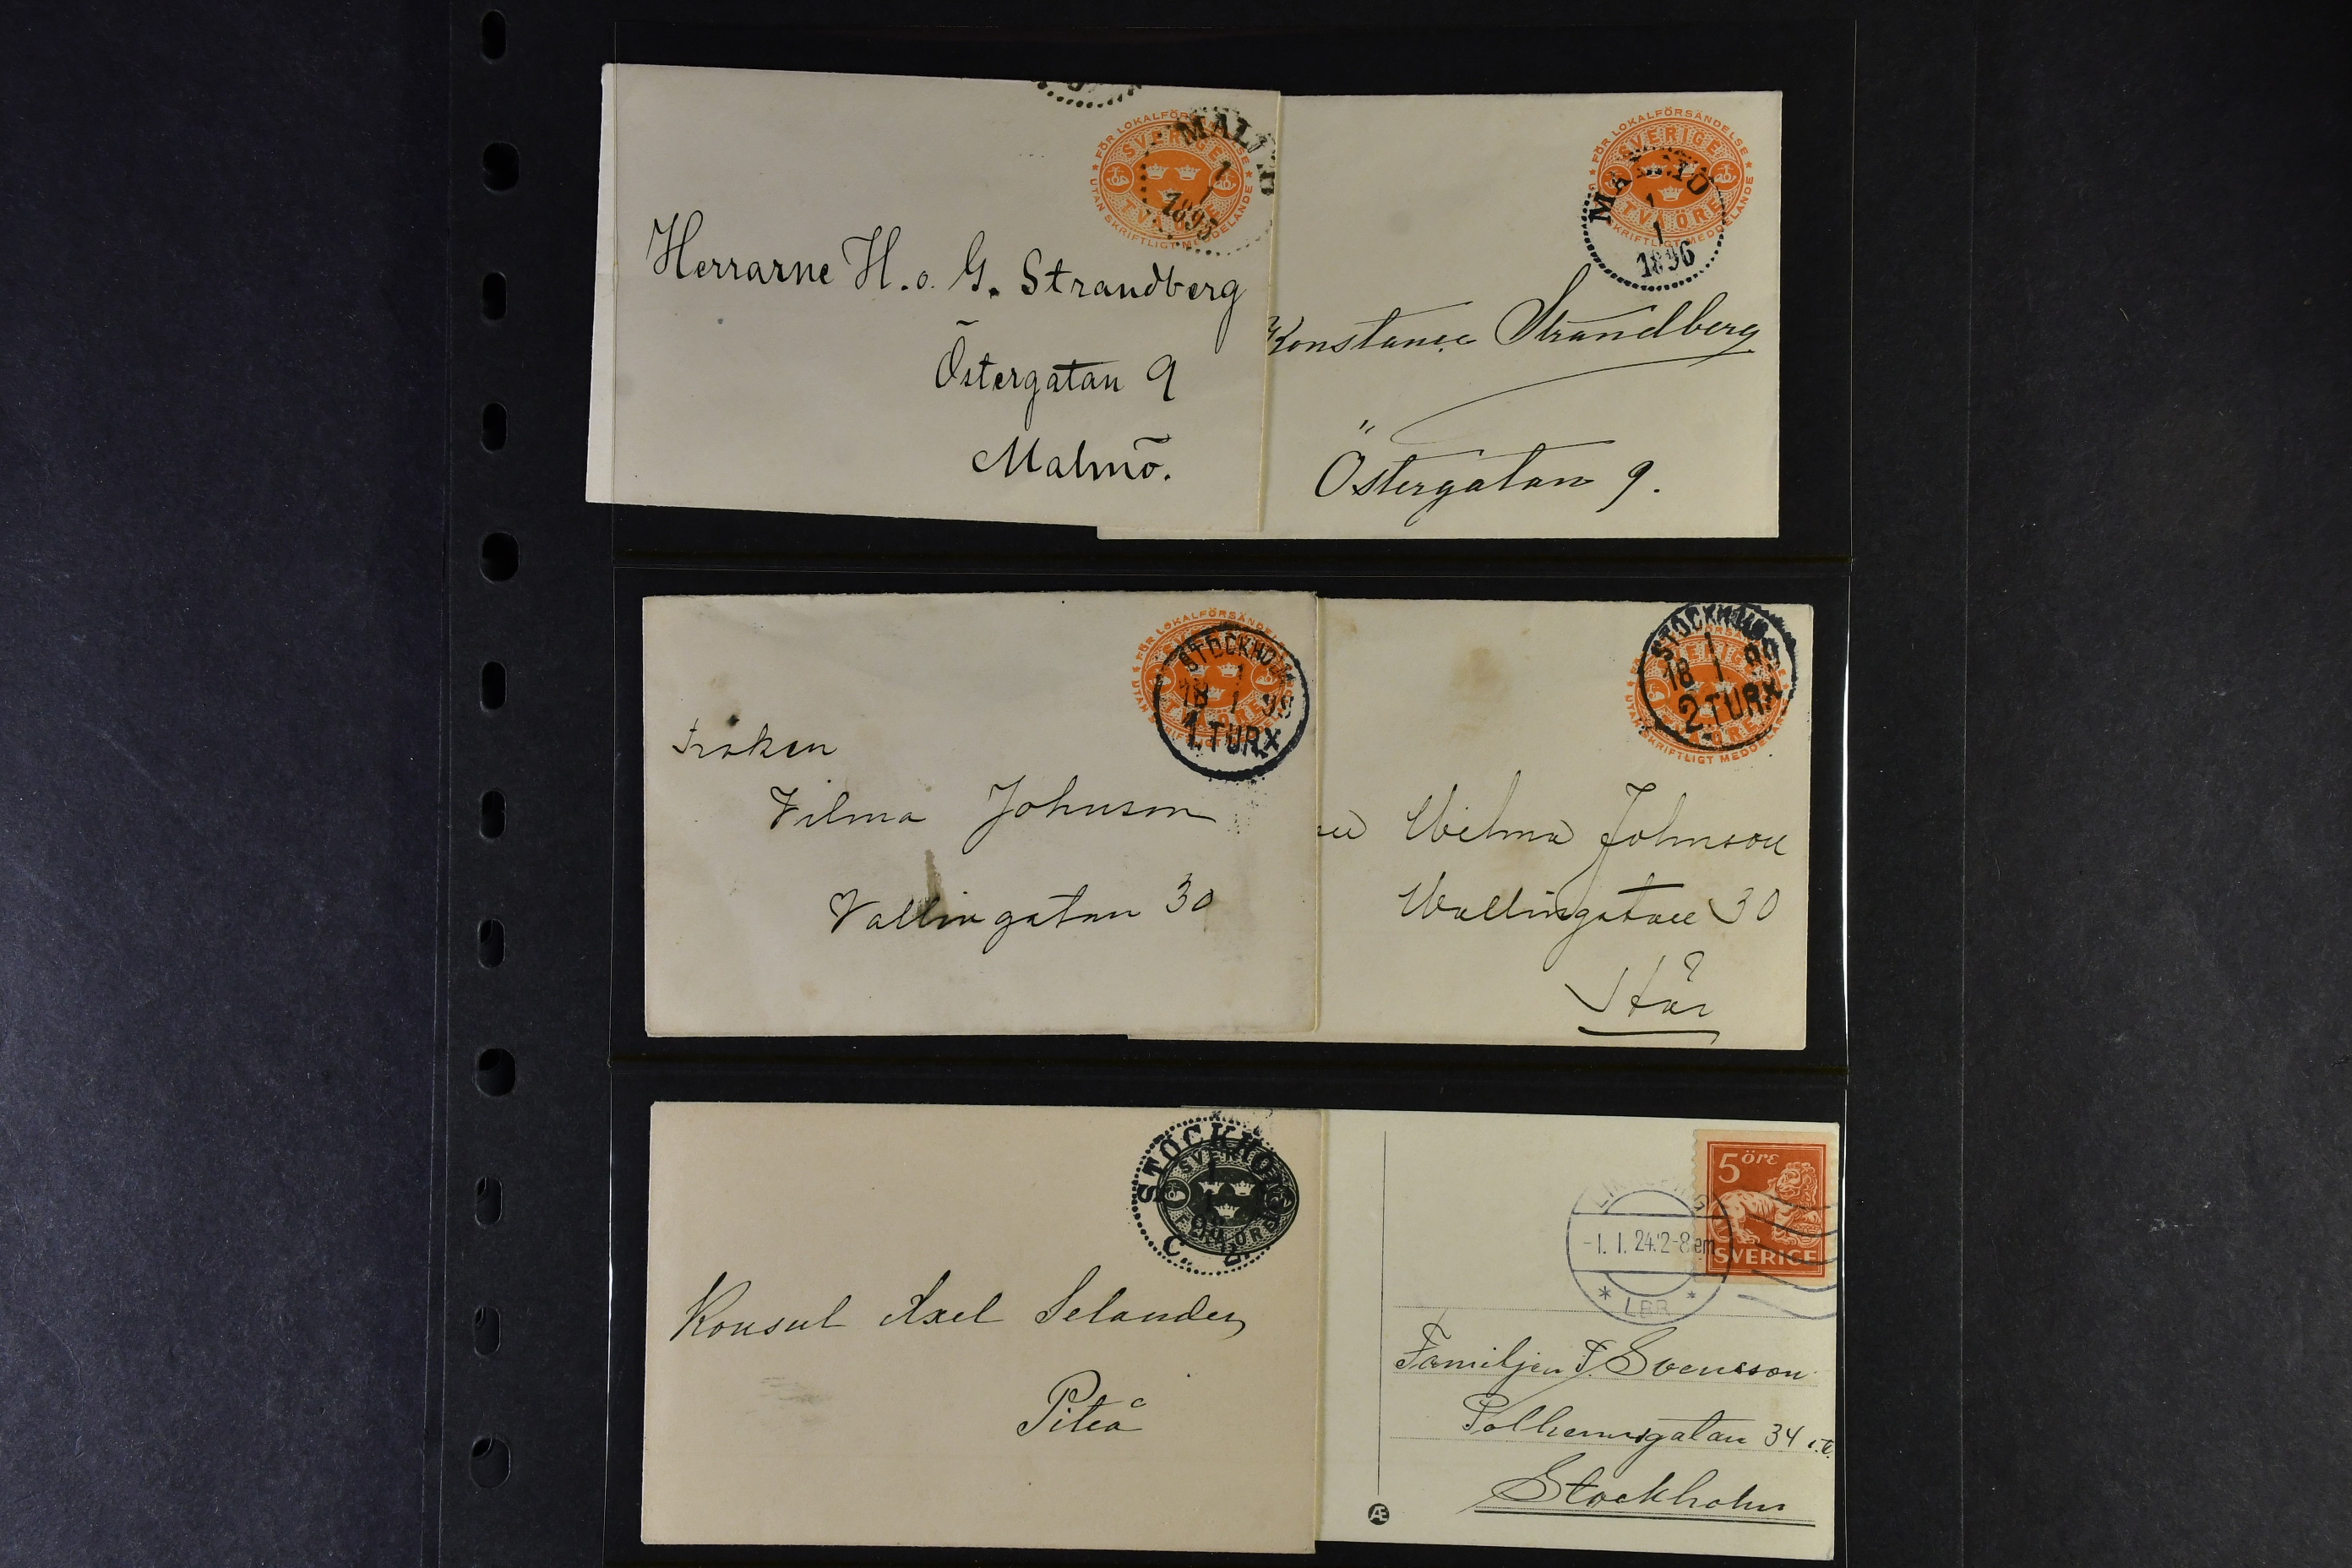 FÖR LOKALFÖRSÄNDELSE
SVERIGE
UTAN SKRIFTLIGT MEDDELANDE
MALMÖ
1
1
1895
Herrarne H. o. G. Strandberg
Östergatan 9
Malmö.
FÖR LOKALFÖRSÄNDELSE
SVERIGE
TVÅ ÖRE
SKRIFTLIGT MEDDELANDE
MALMÖ
1
1
1896
Konstance Strandberg
Östergatan 9.
FÖR LOKALFÖRSÄNDELSE
UTAN
STOCKHOLM
1
18 1 99
1.TUR
Fröken
Vilma Johnson
Vallingatan 30
STOCKHOLM
1
18 1 99
2.TUR
SVERIGE
UTAN SKRIFTLIGT MEDDELANDE
Wilma Johnson
Wallingatan 30
Här
STOCKHOLM
SVERIGE
ÖRE
C.
Konsul Axel Selander
Piteå
5 öre
SVERIGE
-1. 1. 24.12-8em
* LBR *
Familjen F. Svensson
Polhemsgatan 34
Stockholm
Æ